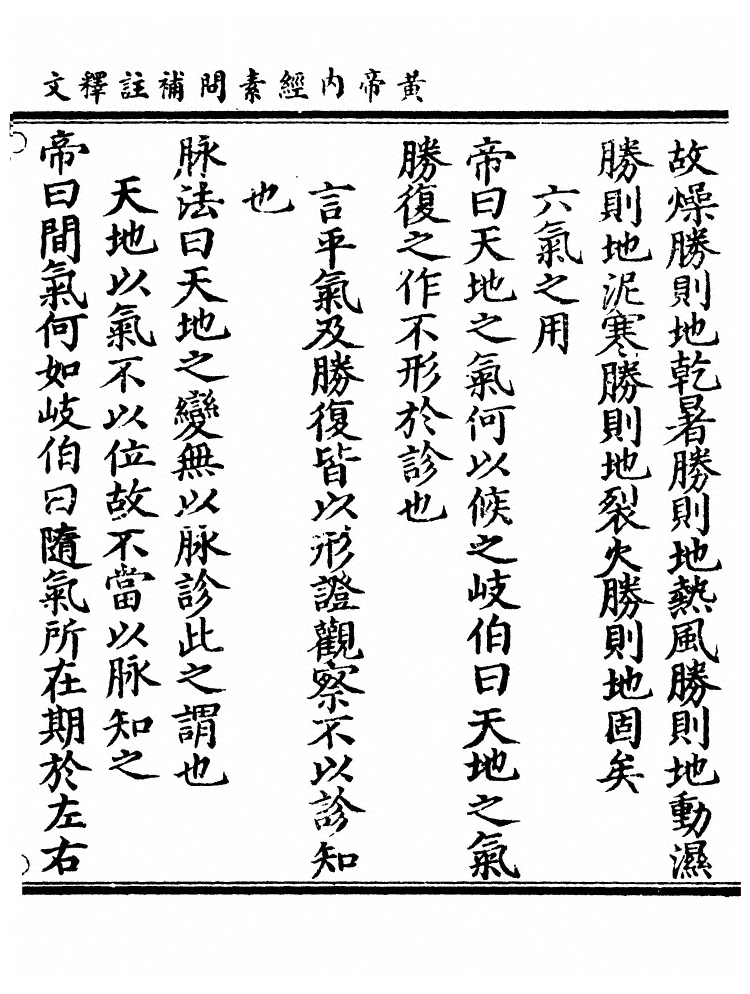 黃帝內經素問補註釋文
故燥勝則地乾暑勝則地熱風勝則地動濕
勝則地泥寒勝則地裂火勝則地固矣
六氣之用
帝曰天地之氣何以候之岐伯曰天地之氣
勝復之作不形於診也
言平氣及勝復皆以形證觀察不以診知
也
脉法曰天地之變無以脉診此之謂也
天地以氣不以位故不當以脉知之
帝曰間氣何如岐伯曰隨氣所在期於左右